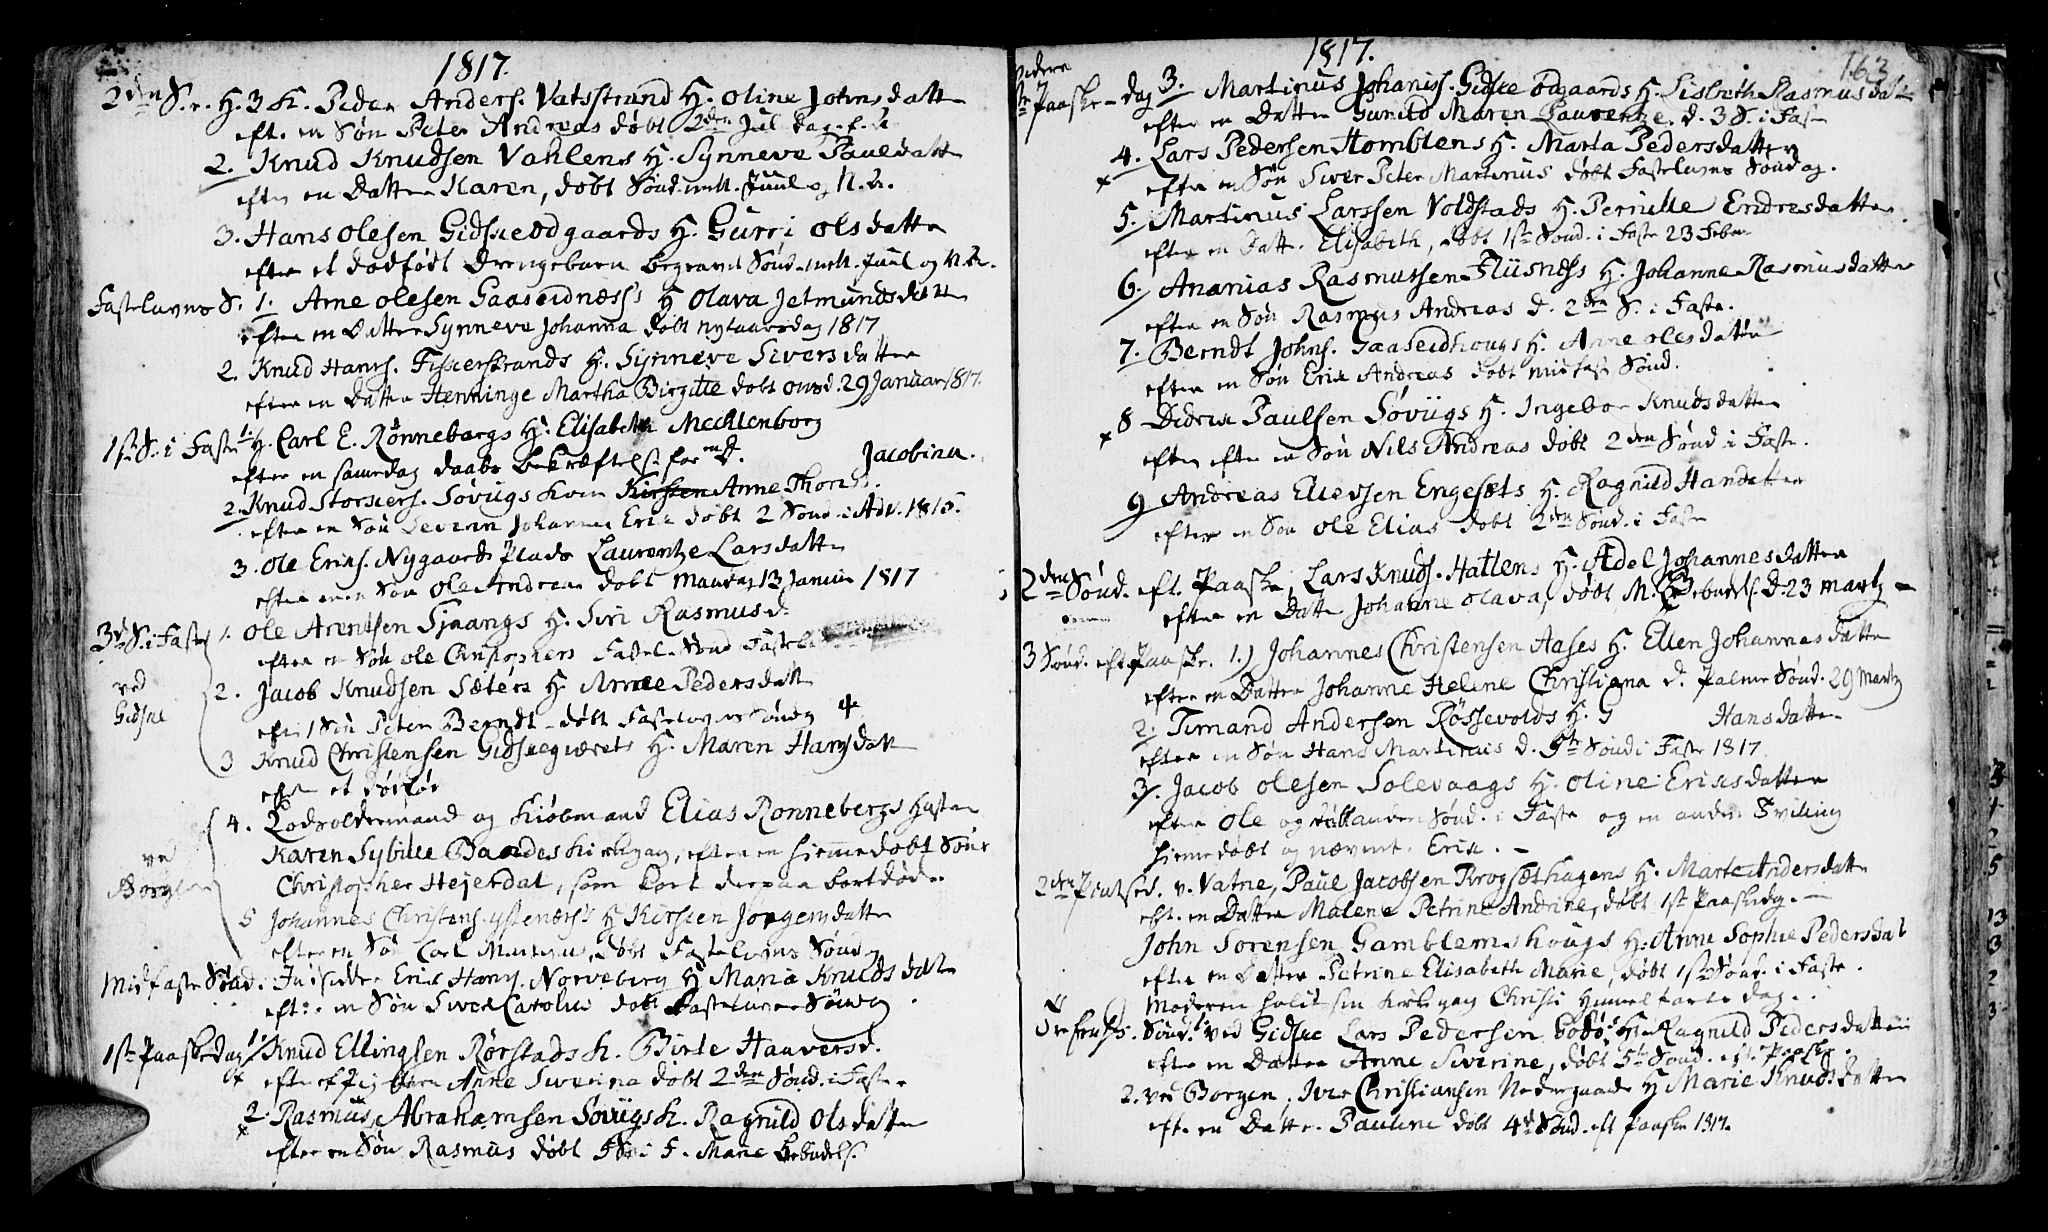 1817.
2den S. e. H. 3 K. Peder Anders. Vatsstrand H. Oline Johnsdatte
eft. en Søn Peter Andreas døbt 2den Jul Dag
2. Knud Knudsen Vahlens H. Synneve Pauledatt
efter en Datter Karen, døbt Sønd. mell. Juul og N. Ar.
3. Hans Olesen Gidskeødgaards H. Gurri Olsdatte
efter et dødfødt Drengebarn begravet Sønd. mell. Juul og N. Ar.
Fastelavns S. 1. Arne Olesen Gaaseidnæss H Olava Jetmundsdatt
efter en Datter Synneve Johanna døbt Nytaarsdag 1817
2. Knud Hans. Fiskerstrands H. Synneve Siversdatter
efter en Datter Henninge Martha Birgitte døbt onsd. 29 Januar 1817.
1ste S. i Faste 1. H. Carl E. Rønnebergs H. Elisabeth Mecklenborg
efter en samedag daabs bekræftelse for en D. Jacobina.
2. Knud Storkers. Søvigs Kone Kirsten Anne Thor
efter en Søn Severin Johannes Erik døbt 2 Sønd. i Adv. 1816.
3. Ole Eriks. Nygaards Plads Laurentze Larsdatte
efter en Søn Ole Andreas døbt Mandag 13 Januar 1817
3de S. i Faste 1. Ole Arentsen Sjaangs H. Siri Rasmusd.
ved Gidske
efter en Søn Ole Christophers Fastel. Sønd
2. Jacob Knudsen Sæters H. Arnee Pedersdatt
eft. 1 Søn Peter Berndt døbt Fastelavns Søndag
3 Knud Christensen Gidskegiærets H. Maren Hansdatt
efter et dødfød
ved Borgen
4. Lodsoldermand og Kiøbmand Elias Rønnebergs Hustru
Karen Sybille Baades Kirkegang, efter en hiemmedøbt Søn
Christopher Hejerdal, som kort derpaa bortdøde
5 Johannes Christens. Ystenæss H Kirsten Jørgensdatte
efter en Søn Carl Martinus, døbt Fastelavns Søndag
Midfaste Sønd. Erik Hans. Norveberg H Maria Knudsdatte
eft. en Søn Sivert Carolus døbt Fastelavns Søndag.
1ste Paaskedag 1. Knud Ellingsen Rørstads K. Birte Haaversd.
x efter et Pigebarn Anne Siverina døbt 2den Sønd. i Faste
2. Rasmus Abrahamsen Søvigs K. Ragnild Olsdatte
x efter en Søn Rasmus døbt Marie Bebudels.
1817.
163
Videre
1ste Paaske-dag 3. Martinus Johanss. Gidske Ødgaards H. Lisbeth Rasmusdatt
efter en Datter Gunild Maren Laurentze. d. 3 S. i Faste
4. Lars Pedersen Homblens H. Marta Pedersdatter
x efter en Søn Siver Peter Martinus døbt Fastelavns Søndag.
5. Martinus Larssen Voldstads H. Pernille Endresdatter.
efter en Datte. Elisabeth, døbt 1ste Sønd. i Faste 23 Febr.
6. Ananias Rasmussen Fliisnæss H. Johanne Rasmusdatter
efter en Søn Rasmus Andreas d. 2den S. i Faste.
7. Berndt Johns. Gaaseidhougs H. Anne Olesdatte
efter en Søn Erik Andreas døbt Midfaste Sønd.
8 Didrik Paulsen Søviigs H. Ingebor Knudsdatter
x efter efter en Søn Nils Andreas døbt 2den Sønd i Faste.
9 Andreas Ellevsen Engesets H. Ragnild Hansdatter
efter en Søn Ole Elias døbt 2den Sønd. i Faste
2den Sønd. eft. Paaske, Lars Knuds. Hatlens H. Adel Johannesdatter
efter en Datte Johanne Olava, døbt M. Bebudels. D. 23 Martz
3 Sønd. eft Paaske. 1.) Johannes Christensen Aases H. Ellen Johannesdatte
efter en Datter Johanne Heline Christiana d. Palme Sønd. 29 Martz
2. Timand Andersen Røssevolds H. G Hansdatte
efter en Søn Hans Martinus d. 5te Sønd i Faste 1817.
3. Jacob Olesen Solevaags H. Oline Eriksdatter
efter Ole og anden Sønd. i Faste og en anden Tvilling
hiemedøbt og nævnt. Erik.
2den Pintsed. v. Vatne, Paul Jacobsen Krogsæthagens H. Marte Andersdatte
eft. en Datter Malene Petrine Andrine, døbt 1ste Paaskedg.
John Sørensen Gamblemshougs H. Anne Sophie Pedersdat
efter en Datter Petrine Elisabeth Marie, døbt 1ste Sønd. i Faste.
Moderen holdt sin Kirkegang Christi Himmelfarts dag.
Sønd. ved Gidske Lars Pedersen Godø, H. Ragnild Pedersdatter
efter en Datter Anne Siverine, døbt 5te Sønd. eft. Paaske.
2. ved Borgen. Iver Christiansen Nedregaards H Marie Knudsdatter
eft. en Datter Pauline døbt 4de Sønd. eft Paaske 1817.